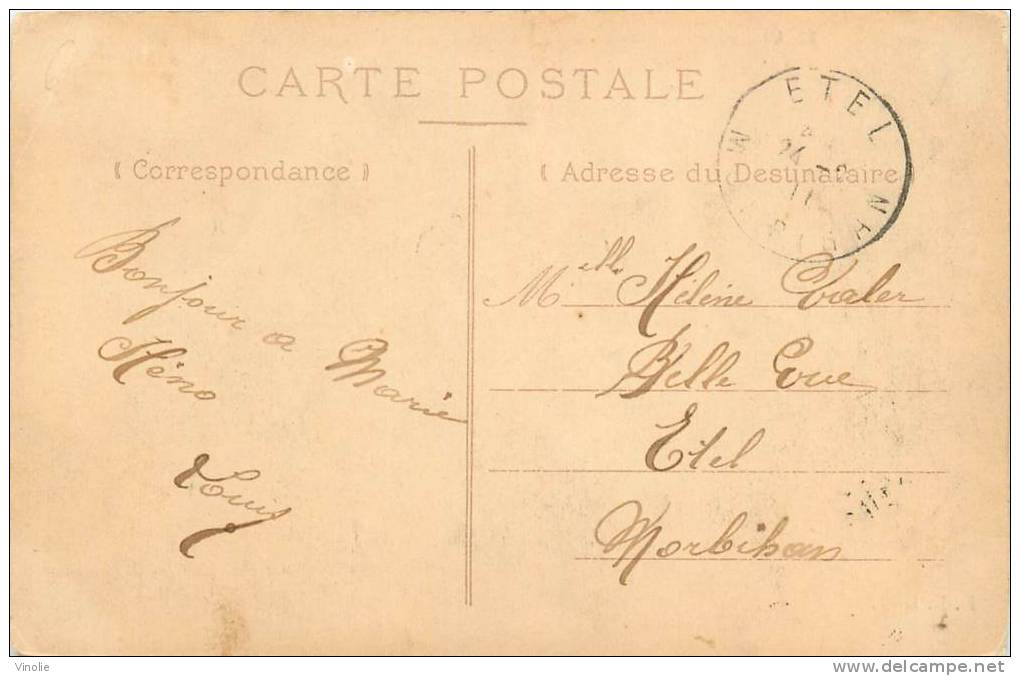 CARTE POSTALE
ETEL
MORBIHAN
24 -2
11
( Correspondance )
( Adresse du Destinataire )
Bonjour a Marie
Héno
Louis
Melle Hélène
Belle
Etel
Morbihan
Vinolie
www.delcampe.net